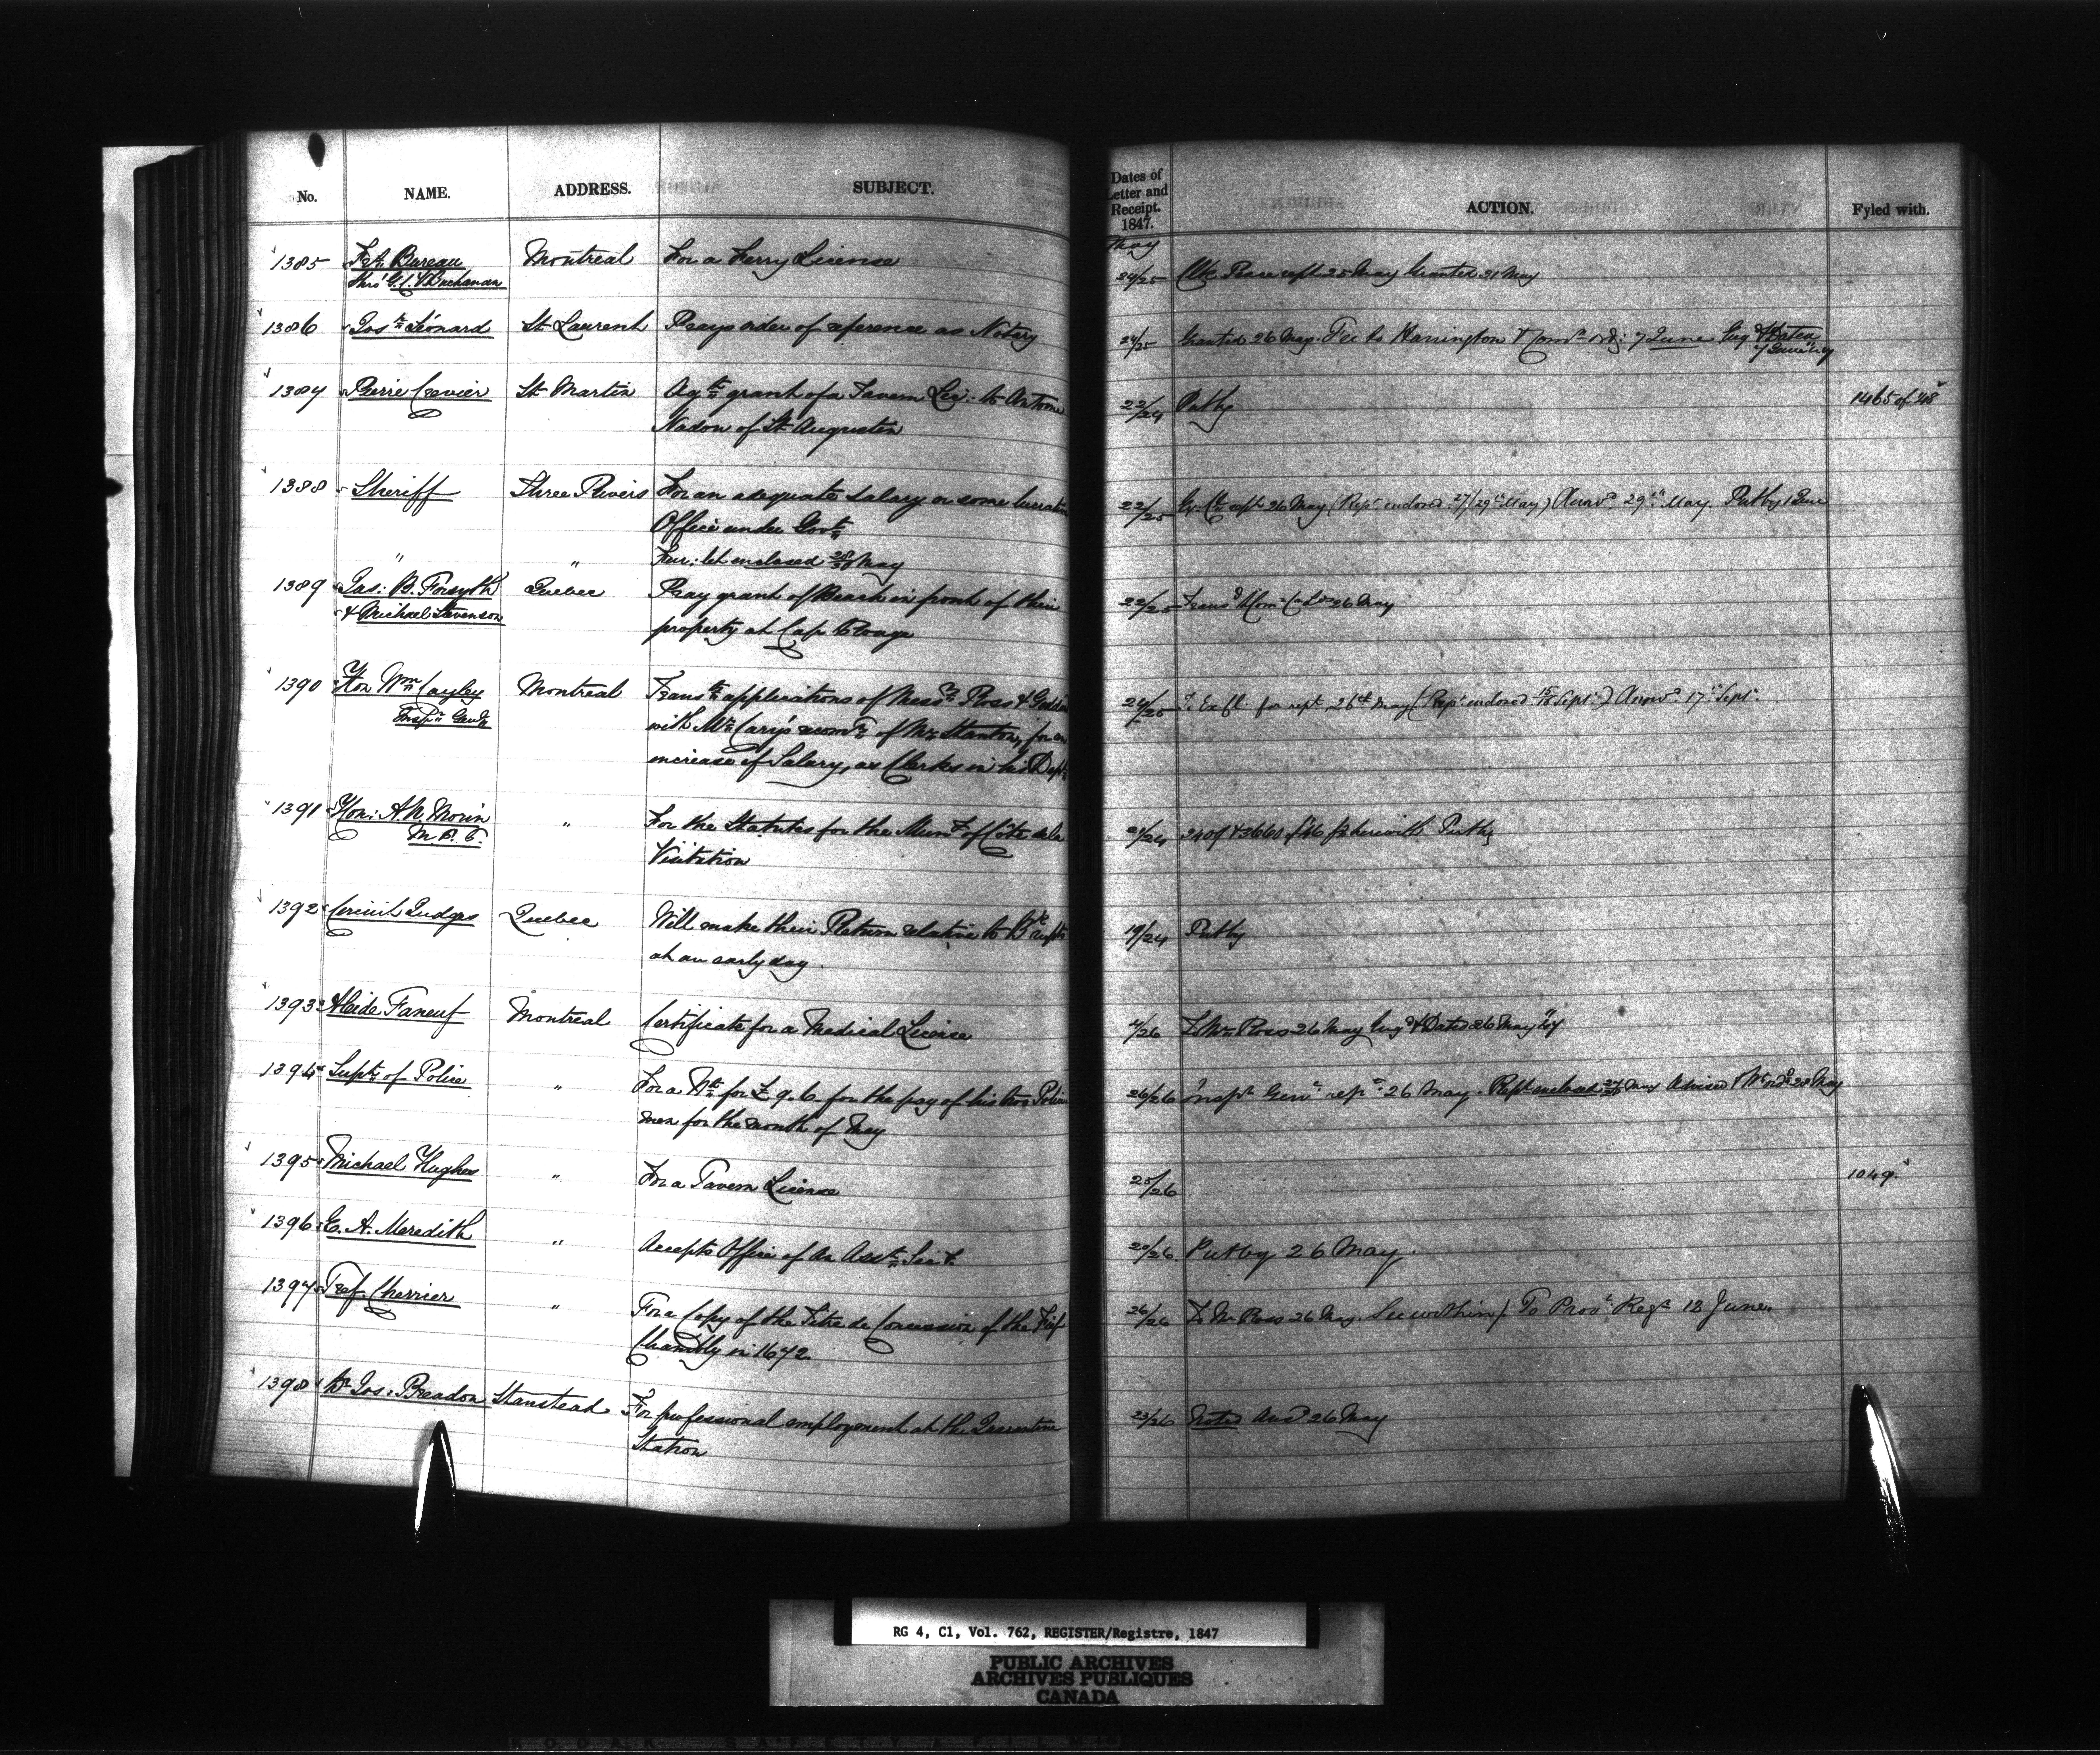 No. NAME. ADDRESS. SUBJECT. Dates of Letter and Receipt. 1847. ACTION. Fyled with.
May
1385 Bureau Montreal For a Ferry License 24/25 rept 25 May Granted 31 May
thro' G. C. V Buchanan
1386 Josh Léonard St Laurent Prays order of reference as Notary 24/25 Granted 26 May. Fee to Harrington 7 June
1387 Pierre Crevier St Martin Agst grant of a Tavern Lic: to Antoine 22/24 Put by 1465 of 48
Nadon of St Augustin
1388 Sheriff Three Rivers For an adequate salary or some lucrative 22/25 rept 26 May (Rept endorsed 27/29th May) Answd 29th May. Put by 1 June
Office under Govt
" " Fur: let enclosed 28 May
1389 Jas: B. Forsyth Quebec Pray grant of Beach in front of their 22/25 Trans 26 May
& Michael Stevenson property at Cap Rouge
1390 Hon Wm Cayley Montreal Transts applications of Messrs Ross & 24/25 for rept 26th May (Rept endorsed 15/16 Sept.) Answd 17th Sept.
Inspr Genl with Mr Cary's of Mr Stanton, for an
increase of Salary, as Clerks in his Dept
1391 Hon: A N Morin " For the Statutes for the of Côte de la 24/24 & 3660 of 46 herewith Put by
M. P. P. Visitation
1392 Circuit Judges Quebec Will make their Return relative to 19/24 Put by
at an early day
1393 Alcide Faneuf Montreal Certificate for a Medical License 4/26 To Mr Ross 26 May Dated 26 May
1394 Supt of Police " For a Wt for £9.6. for the pay of his two Police 26/26 Inspr Genl rept 26 May. Rept enclosed 27 May 28 May
men for the month of May
1395 Michael Hughes " For a Tavern License 25/26 1049.
1396 E. A. Meredith " Accepts Office of an Asst Sect. 20/26 Put by 26 May.
1397 Tref. Cherrier " For a Copy of the Titre de Concession of the Fief 26/26 To Mr Ross 26 May. See within / To Provl Regr 12 June.
Chambly in 1672
1398 Dr Jos: Breadon Stanstead For professional employment at the Quarantine 23/26 Noted Ansd 26 May
Station
RG 4, C1, Vol. 762, REGISTER/Registre, 1847
PUBLIC ARCHIVES
ARCHIVES PUBLIQUES
CANADA
KODAK SAFETY FILM